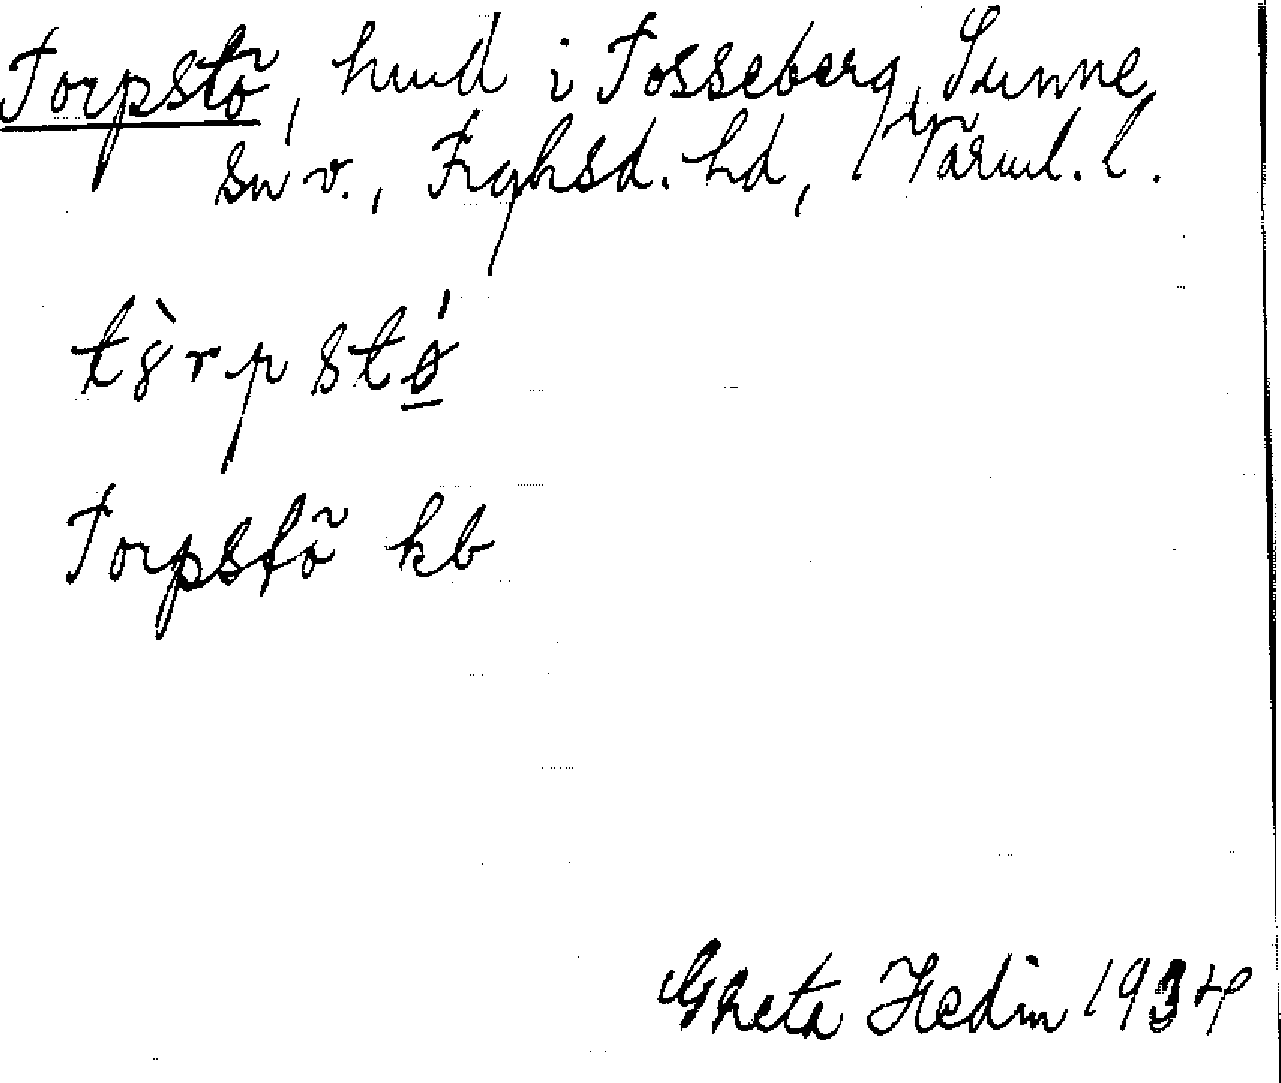 Torpstö, hmd i Tosseberg, Sunne
sn v., Fryksd. hd, Värml. l.
tò̤rpstǿ
Torpstö kb
Greta Hedin 1934